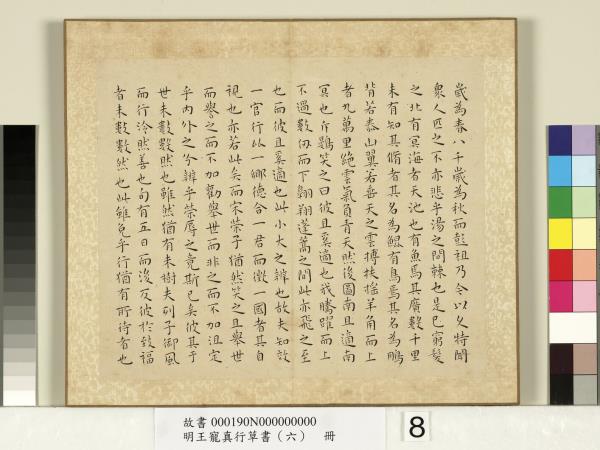 歲為春八千歲為秋而彭祖乃今以久特聞
衆人匹之不亦悲乎湯之問棘也是已窮髮
之北有冥海者天池也有魚焉其廣數千里
未有知其脩者其名為鯤有鳥焉其名為鵬
背若泰山翼若垂天之雲摶扶搖羊角而上
者九萬里絕雲氣負青天然後圖南且適南
冥也斥鷃笑之曰彼且奚適也我騰躍而上
不過數仞而下翱翔蓬蒿之間此亦飛之至
也而彼且奚適也此小大之辨也故夫知效
一官行比一鄉德合一君而徵一國者其自
視也亦若此矣而宋榮子猶然笑之且舉世
而譽之而不加勸舉世而非之而不加沮定
乎內外之分辨乎榮辱之竟斯已矣彼其于
世未數數然也雖然猶有未樹夫列子御風
而行泠然善也旬有五日而後反彼於致福
者未數數然也此雖免乎行猶有所待者也
故書 000190N000000000
明王寵真行草書（六） 冊
8